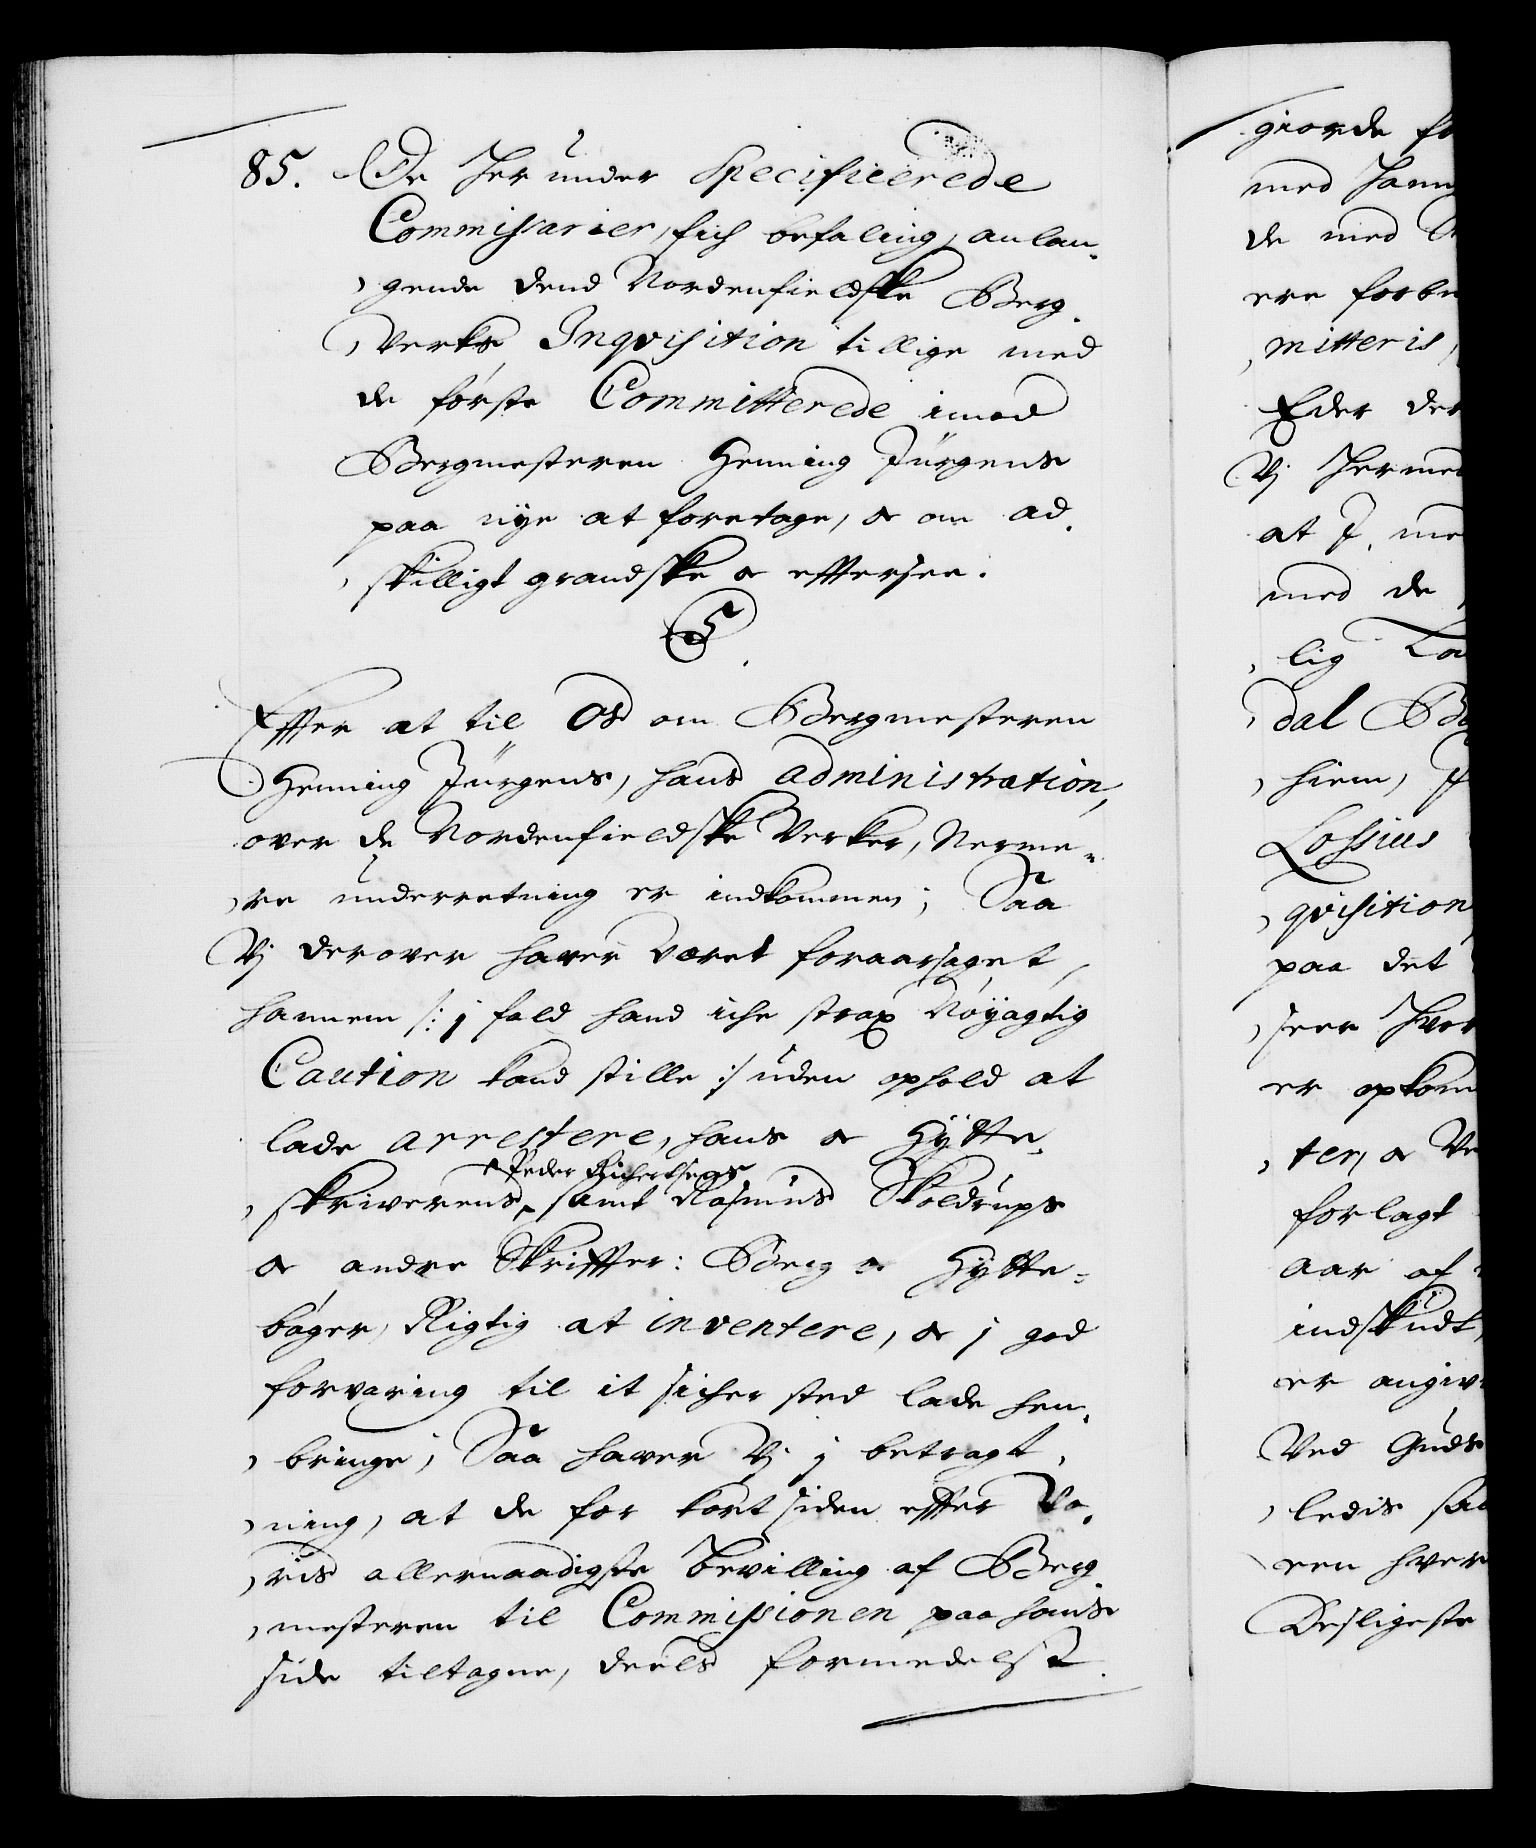 85. De Her under Specificerede
Commissarier, fich befaling, anlan-
gende dend Nordenfieldske Berg-
Verks Inqvisition tillige med
de første Committerede imod
Bergmesteren Henning Jürgens
paa nÿe at foretage, & om ad-
skilligt grandske & effersee.
C5
Effter at til Os om Bergmesteren
Henning Jürgens, hans administration,
over de Nordenfieldske Verker, Nerme-
re underretning er indkommen; Saa
Vj derover haver været foraarsaget,
hannem /: j fald hand iche strax Nøÿagtig
Caution kand stille :/ uden ophold at
lade arrestere, hans & Hÿtte-
& Peder Richertsens
skriverens, samt Rasmus Skoldrups
& andre Skriffter: Berg & Hÿtte-
bøger, Rigtig at inventere, & j god
forvaring til it sicher sted lade hen-
bringe; Saa haver Vj j betragt-
ning, at de for kort siden effter Vo-
ris allernaadigste bevilling af Berg-
mesteren til Commissionen paa hans
side tiltagne, deels formedelst
giorde
med
de med
ere
mitteris,
Eder der
Vj Hermed
at J, me
med de
lig
dal
hiem,
Lossius
qvisition
paa det
seer Hvor
er opkom
ter, & Ve
forlagt
aar af
indskudt,
er angiv
Ved Guds
ledis
een hver
Desligeste